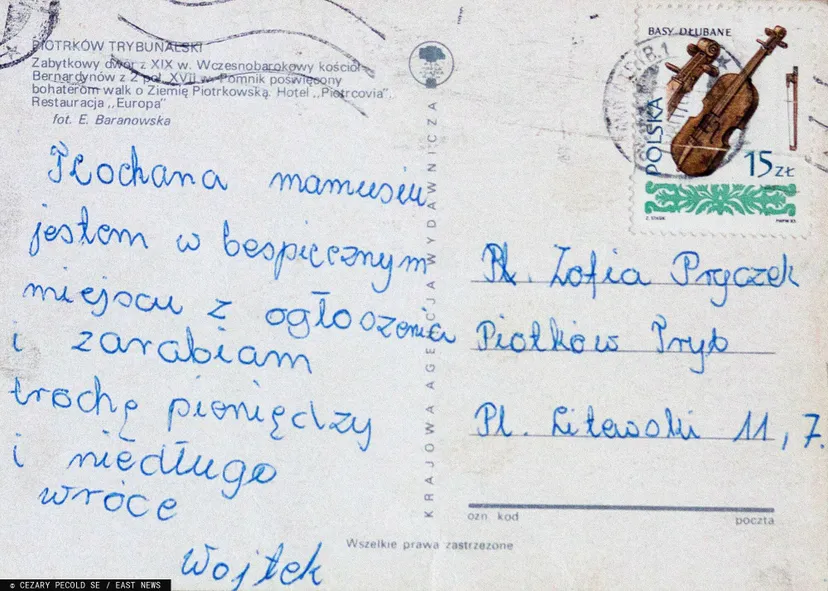 PIOTRKÓW TRYBUNALSKI
Zabytkowy dwór z XIX w. Wczesnobarokowy kościół
Bernardynów z 2 poł. XVII w. Pomnik poświęcony
bohaterom walk o Ziemię Piotrkowską. Hotel ,,Piotrcovia".
Restauracja ,,Europa"
fot. E. Baranowska
Kochana mamusiu
jestem w bespiecznym
miejscu z ogłoszenia
i zarabiam
trochę pieniędzy
i niedługo
wróce
Wojtek
KRAJOWA AGENCJA WYDAWNICZA
BASY DŁUBANE
POLSKA
15 ZŁ
Pl. Zofia Pryczek
Piotków Tryb
Pl. Litewski 11, 7.
ozn kod
poczta
Wszelkie prawa zastrzeżone
© CEZARY PECOLD SE / EAST NEWS